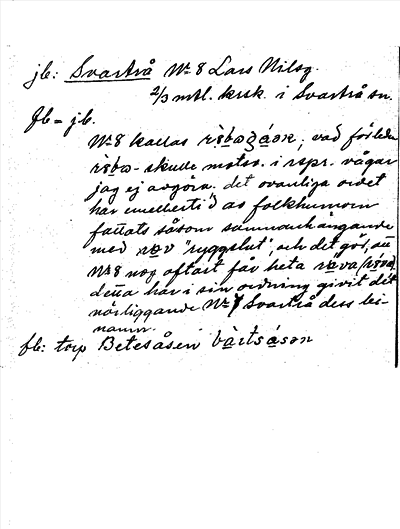 jb: Svartrå Nr 8 Lars Nilsg.
2/3 mtl. krsk. i Svartrå sn.
Jb = jb.
Nr 8 kallas ; vad förleden
- skulle motsv. i rspr. vågar
jag ej avgöra. det ovanliga ordet
har emellertid av folkhumorn
fattats såsom sammanhängande
med "ryggslut", och det gör, att
Nr 8 nog oftast får heta
denna har i sin ordning givit det
närliggande Nr 1 Svartrå dess bi-
namn.
fb: torp Betesåsen